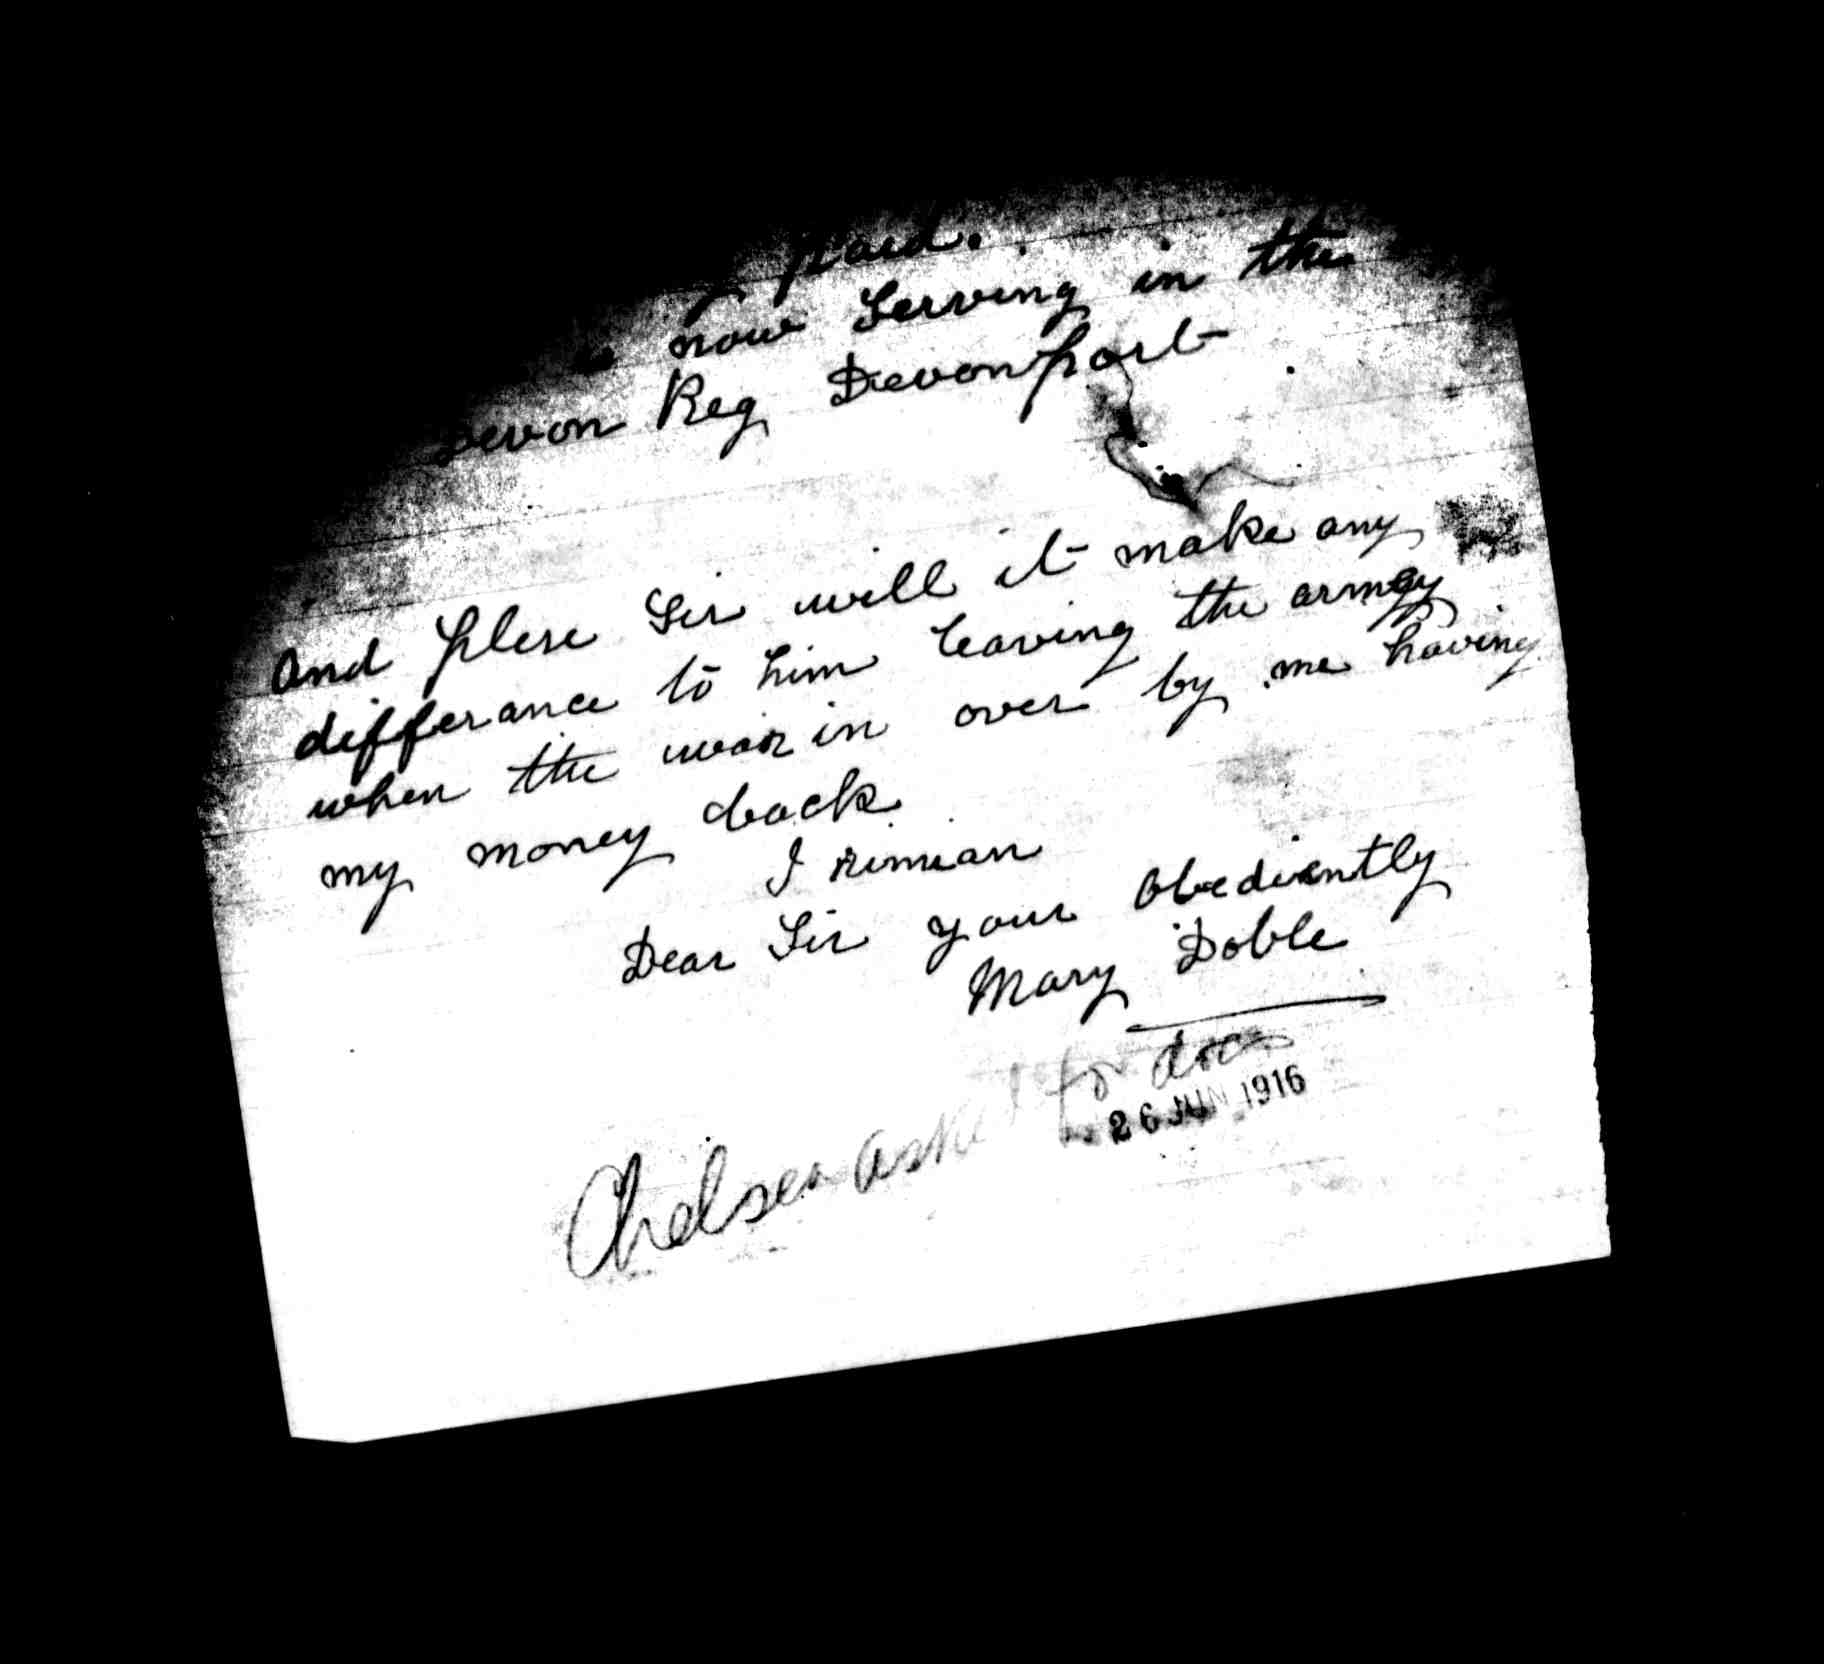 paid.
now Serving in the
Devon Reg Devonport
And plese Sir will it make any
differance to him leaving the army
when the war in over by me having
my money back
I rimian
Dear Sir your Obediently
Mary Doble
Chelsea asked for docs
26 JUN 1916